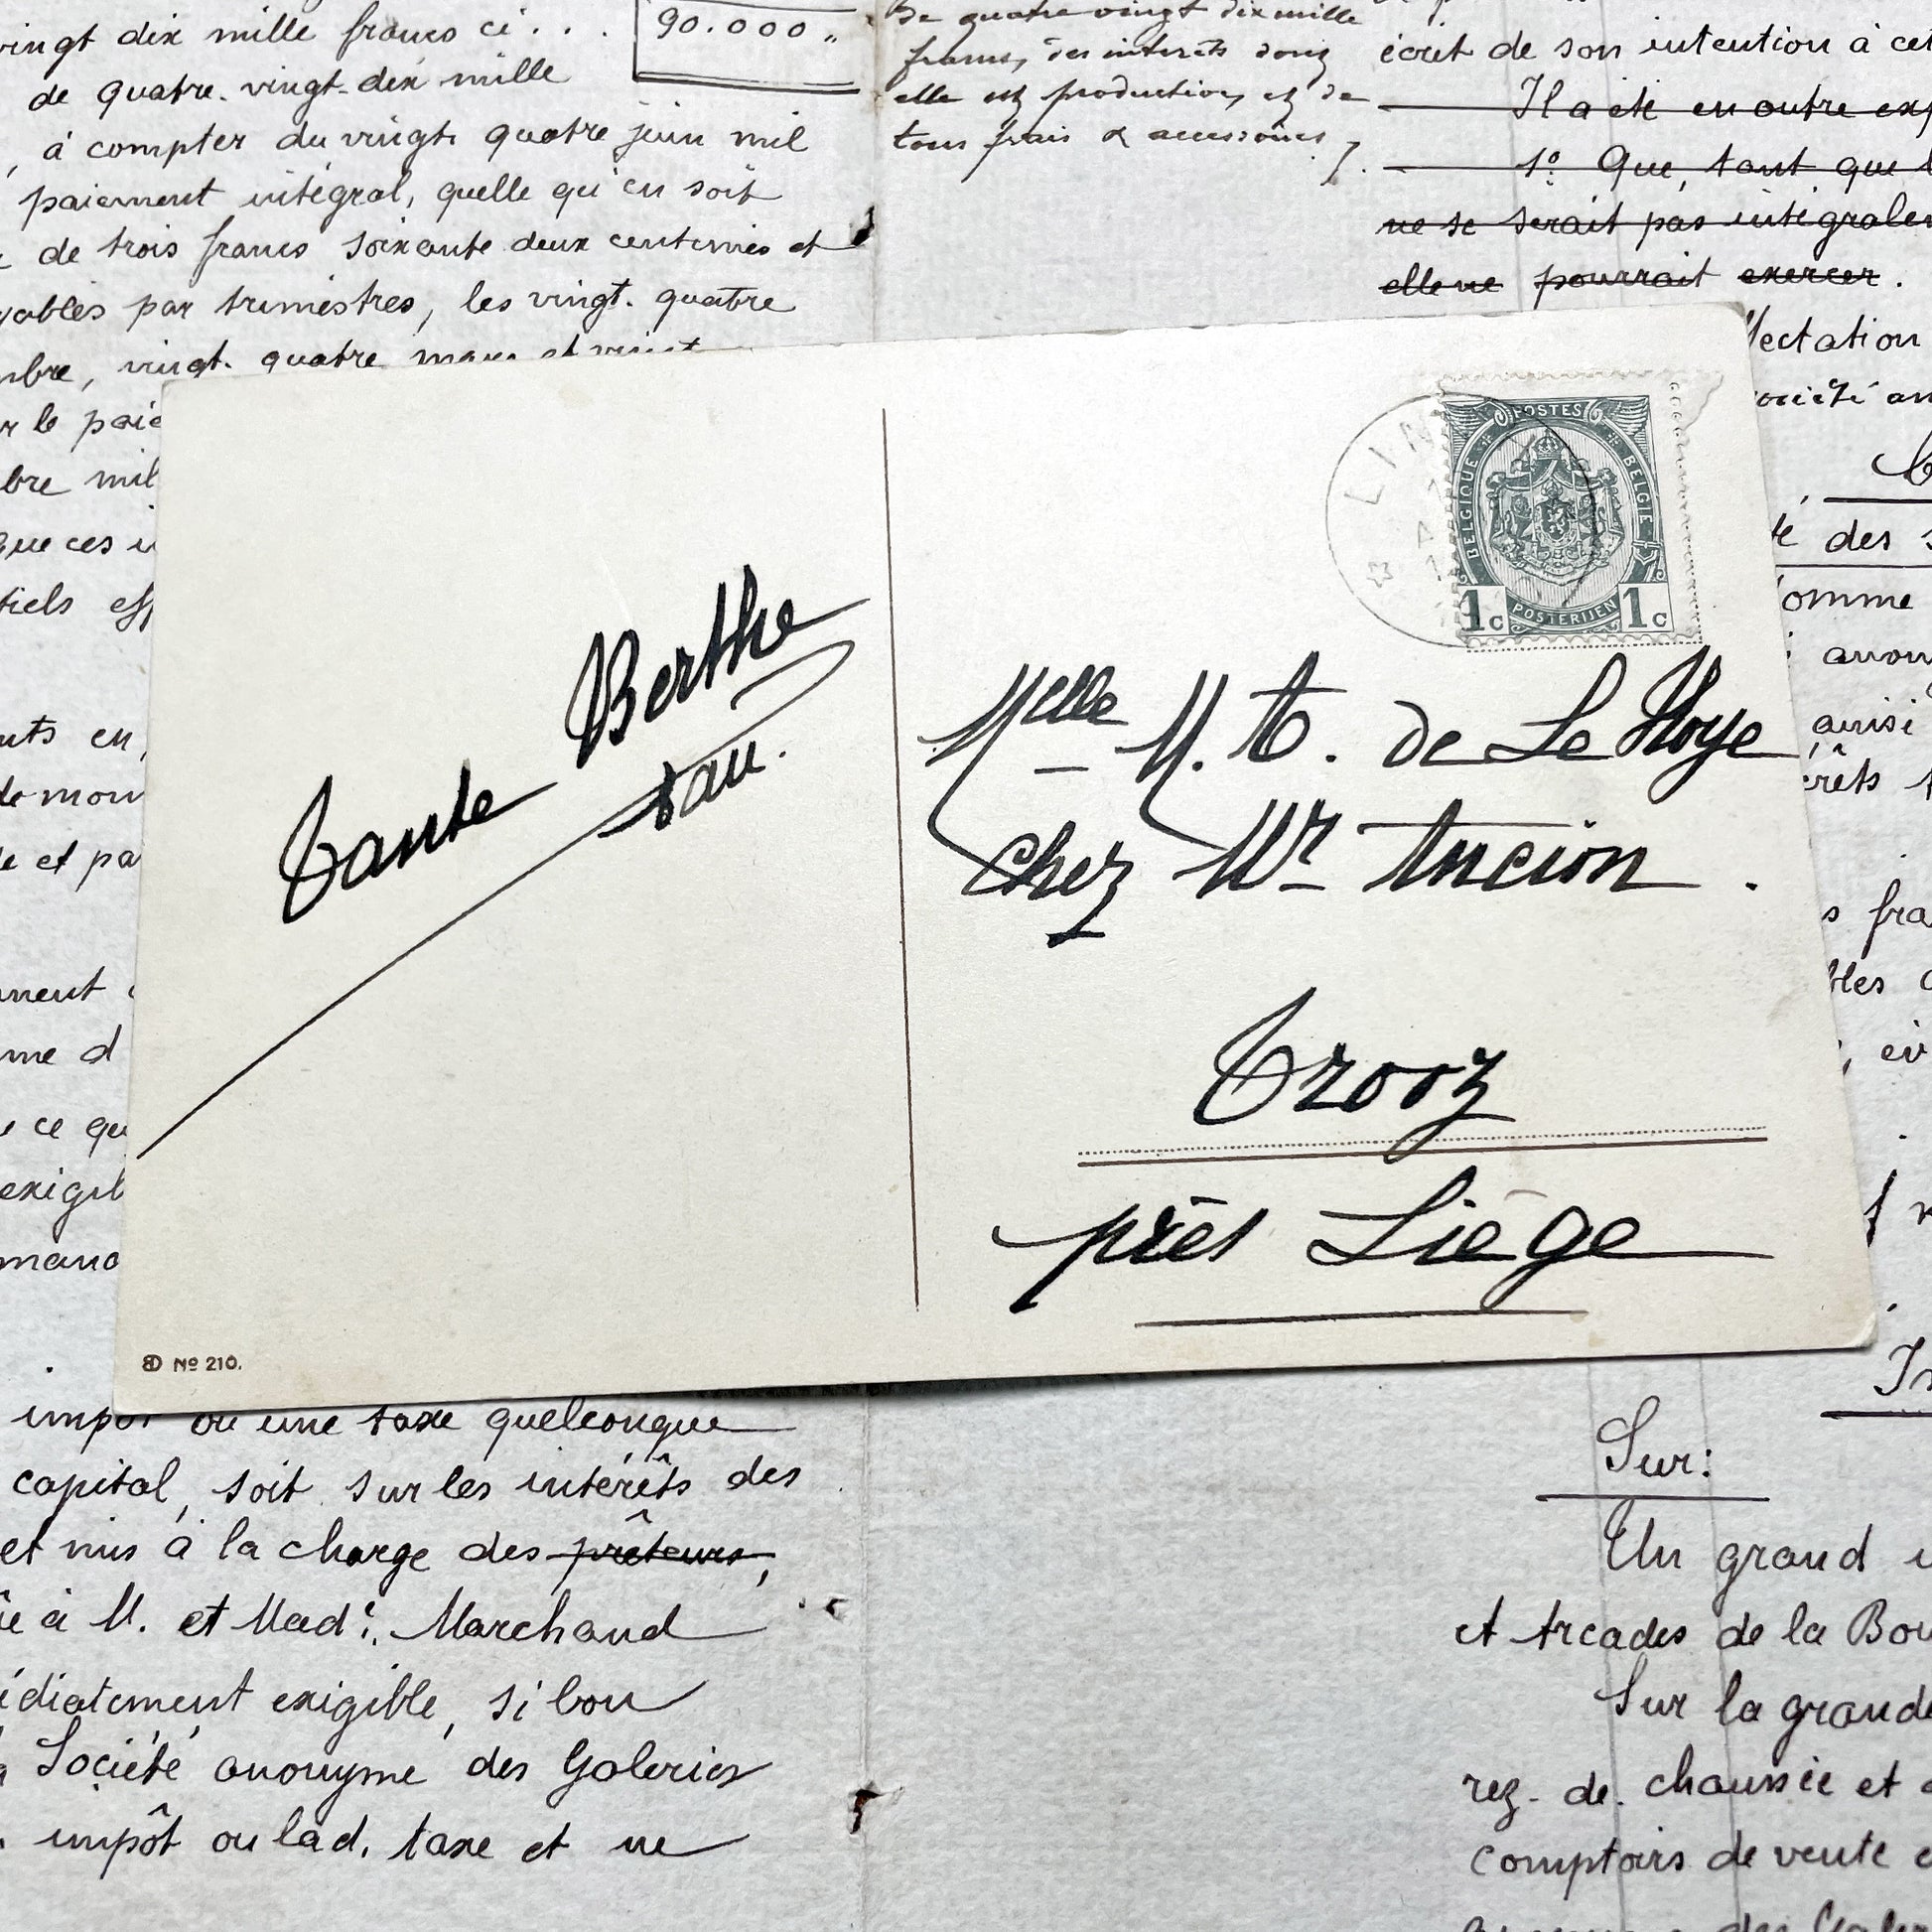 vingt dix mille francs ci . . .
90.000 "
de quatre-vingt-dix mille
, à compter du vingt quatre juin mil
paiement intégral, quelle qu'en soit
de trois francs soixante deux centimes et
yables par trimestres, les vingt-quatre
mbre, vingt-quatre mars et vingt
r le paie
bre mil
que ces i
tiels eff
nts en,
de mon
le et pa
ment
me d
ce qu
exigib
mand
De quatre vingt dix mille
francs, des intérêts dont
elle est production, et de
tous frais & accessoires
écrit de son intention à cet
Il a été en outre exp
1º Que, tant que l
ne se serait pas intégralem
elle ne pourrait exercer.
fectation
société an
té des s
omme
anony
ainsi
érêts
s fra
bles
, év
Tante Berthe
Nº 210.
LIN
POSTES
BELGIQUE
BELGIE
1c POSTERIJEN 1c
Melle M. A. de Le Hoye
Chez Mr Ancion.
Trooz
près Liége
impôt ou une taxe quelconque
capital, soit sur les intérêts des
et mis à la charge des prêteurs,
à M. et Made. Marchand
édiatement exigible, si bon
Société anonyme des Galeries
impôt ou lad. taxe et ne
Sur:
Un grand
et Arcades de la Bou
Sur la grande
rez-de-chaussée et
comptoirs de vente e